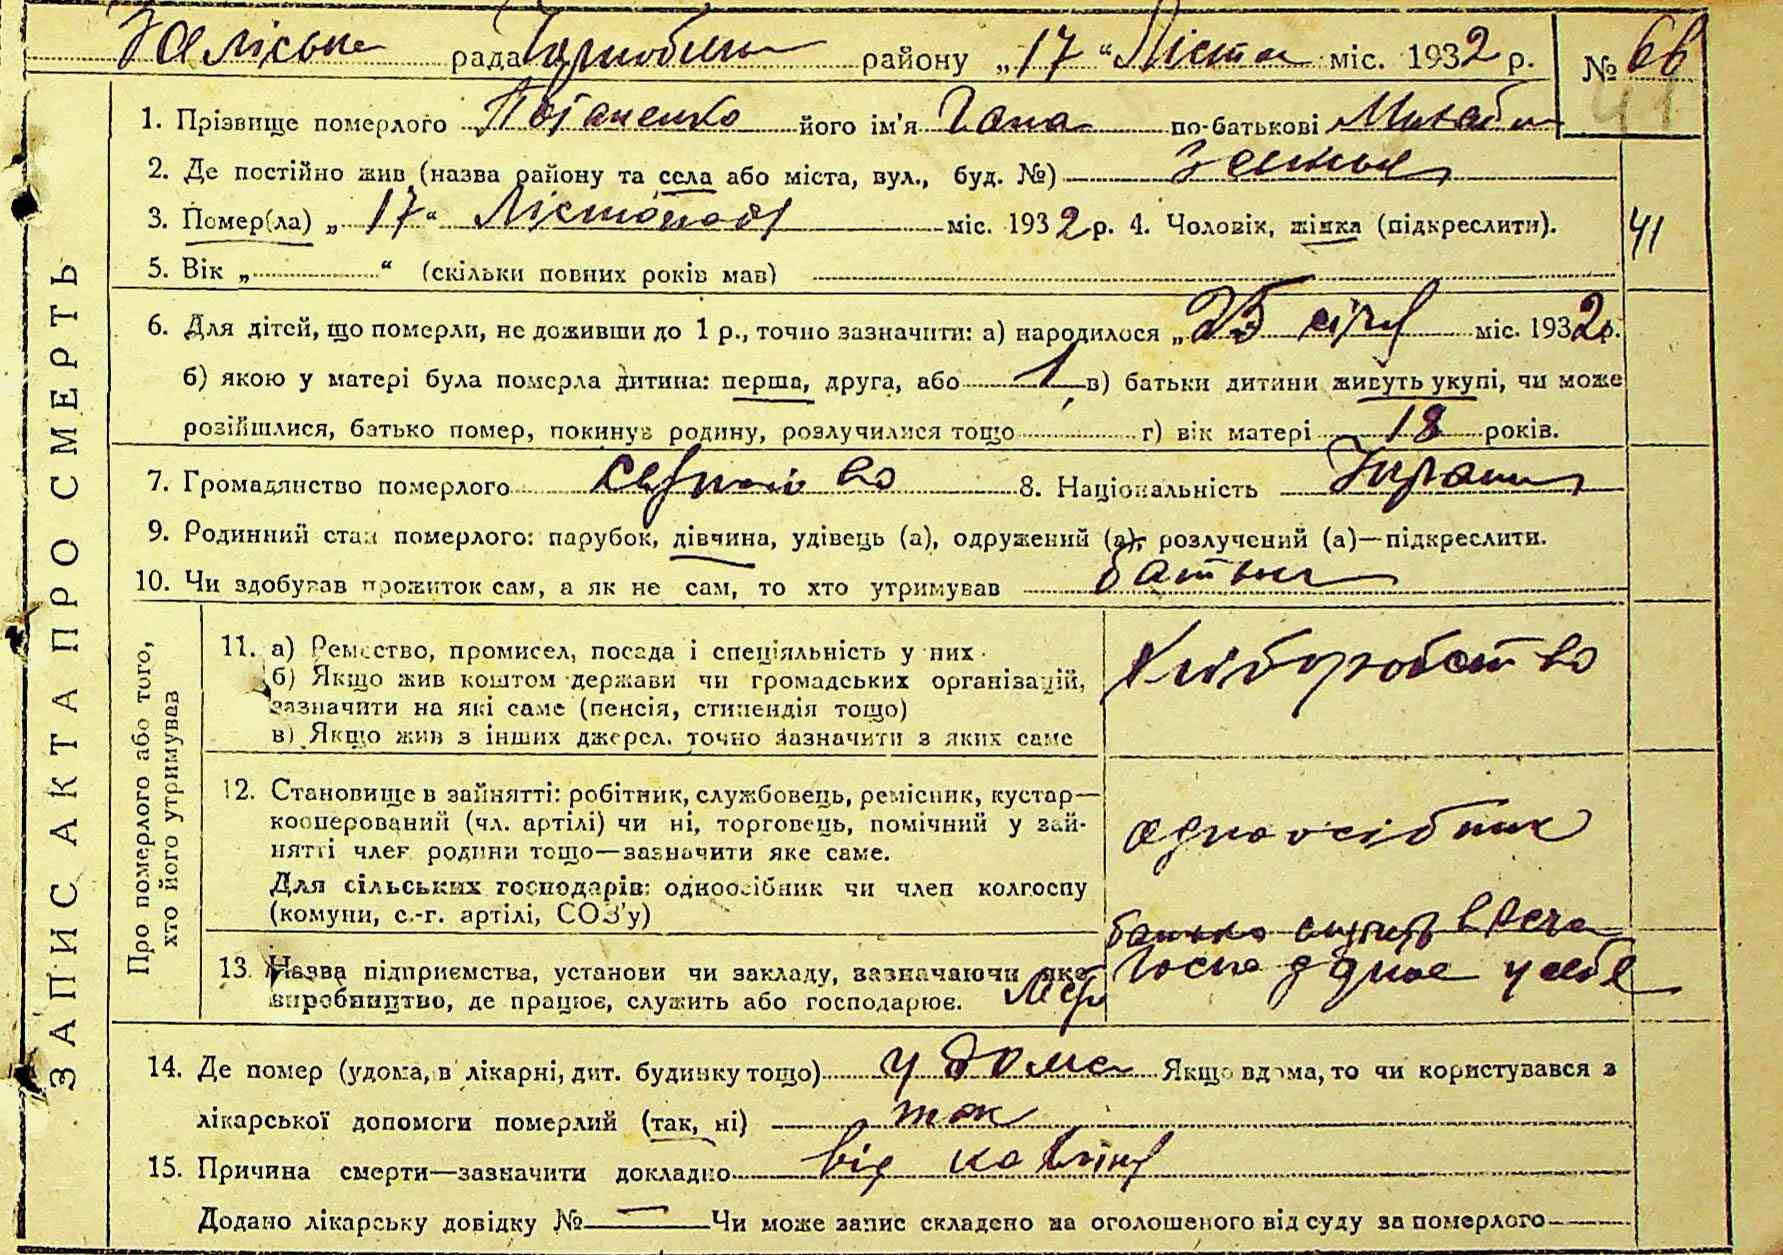 Заліська рада Чорнобил району „17“ Листоп міс. 1932 р. № 66
41
1. Прізвище померлого Потапенко його ім'я Гана по-батькові
2. Де постійно жив (назва району та села або міста, вул., буд. №)
3. Помер(ла) „17“ Лістопада міс. 1932 р. 4. Чоловік, жінка (підкреслити). 41
5. Вік „ “ (скільки повних років мав)
6. Для дітей, що померли, не доживши до 1 р., точно зазначити: а) народилося „25 січня міс. 1932 р.
б) якою у матері була померла дитина: перша, друга, або 1 в) батьки дитини живуть укупі, чи може
розійшлися, батько помер, покинув родину, розлучилися тощо г) вік матері 18 років.
7. Громадянство померлого 8. Національність Україн
9. Родинний стан померлого: парубок, дівчина, удівець (а), одружений (а), розлучений (а)—підкреслити.
10. Чи здобував прожиток сам, а як не сам, то хто утримував батьки
ЗАПИС АКТА ПРО СМЕРТЬ
Про померлого або того,
хто його утримував
11. а) Ремество, промисел, посада і спеціяльність у них
б) Якщо жив коштом держави чи громадських організацій,
зазначити на які саме (пенсія, стипендія тощо)
в) Якщо жив з інших джерел, точно зазначити з яких саме
Хліборобство
12. Становище в зайнятті: робітник, службовець, ремісник, кустар—
кооперований (чл. артілі) чи ні, торговець, помічний у зай-
нятті член родини тощо—зазначити яке саме.
Для сільських господарів: одноосібник чи член колгоспу
(комуни, с.-г. артілі, СОЗ'у)
одноосібник
13. Назва підприємства, установи чи закладу, зазначаючи яке
виробництво, де працює, служить або господарює.
батько служить в
у себе
14. Де помер (удома, в лікарні, дит. будинку тощо) у дома Якщо вдома, то чи користувався з
лікарської допомоги померлий (так, ні) так
15. Причина смерти—зазначити докладно від
Додано лікарську довідку № — Чи може запис складено на оголошеного від суду за померлого